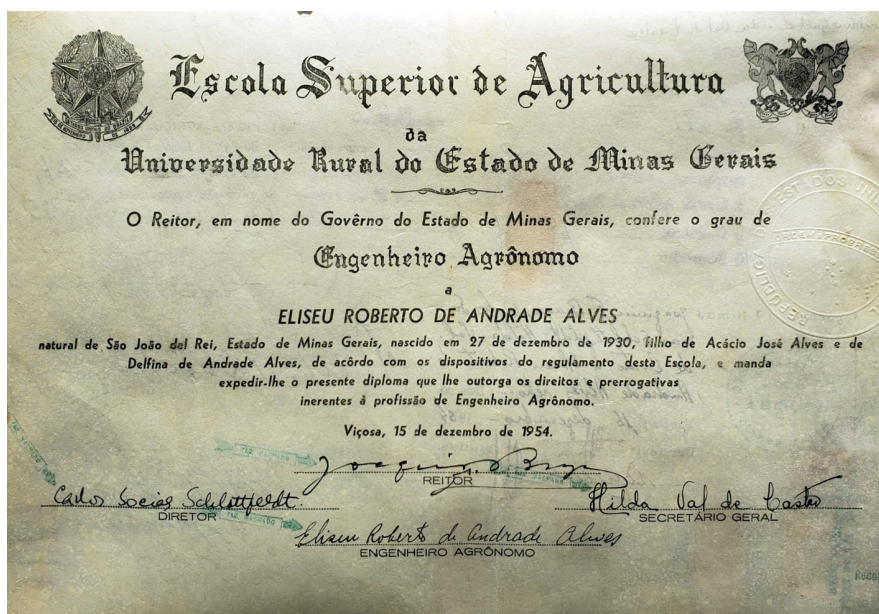 Escola Superior de Agricultura
da
Universidade Rural do Estado de Minas Gerais
O Reitor, em nome do Govêrno do Estado de Minas Gerais, confere o grau de
Engenheiro Agrônomo
a
ELISEU ROBERTO DE ANDRADE ALVES
natural de São João del Rei, Estado de Minas Gerais, nascido em 27 de dezembro de 1930, filho de Acácio José Alves e de
Delfina de Andrade Alves, de acôrdo com os dispositivos do regulamento desta Escola, e manda
expedir-lhe o presente diploma que lhe outorga os direitos e prerrogativas
inerentes à profissão de Engenheiro Agrônomo.
Viçosa, 15 de dezembro de 1954.
REITOR
Carlos Socias Schlottfeldt.
DIRETOR
Hilda Val de Castro
SECRETÁRIO GERAL
Eliseu Roberto de Andrade Alves
ENGENHEIRO AGRÔNOMO